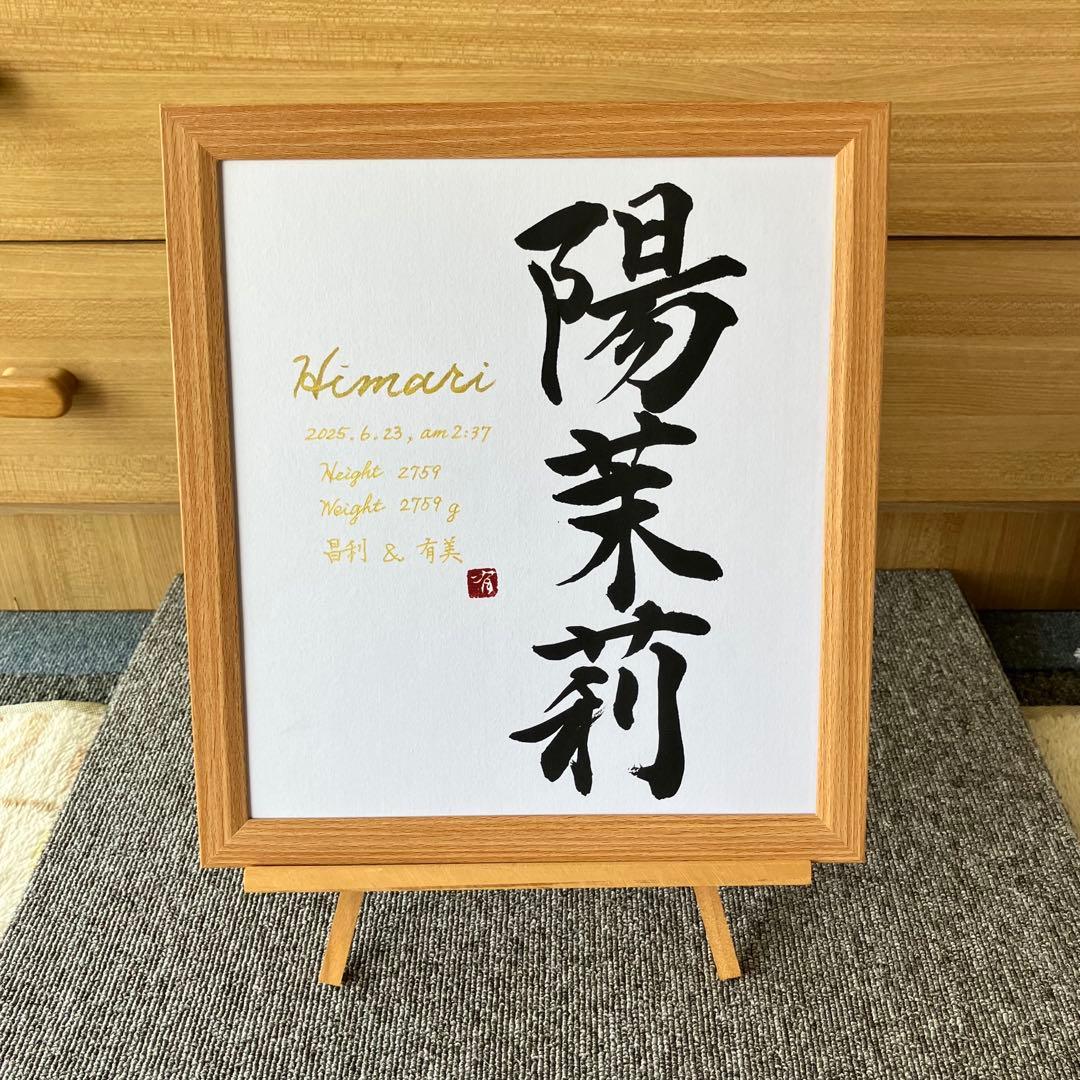 陽茉莉
Himari
2025.6.23, am2:37
Height 2759
Weight 2759g
昌利 & 有美
有